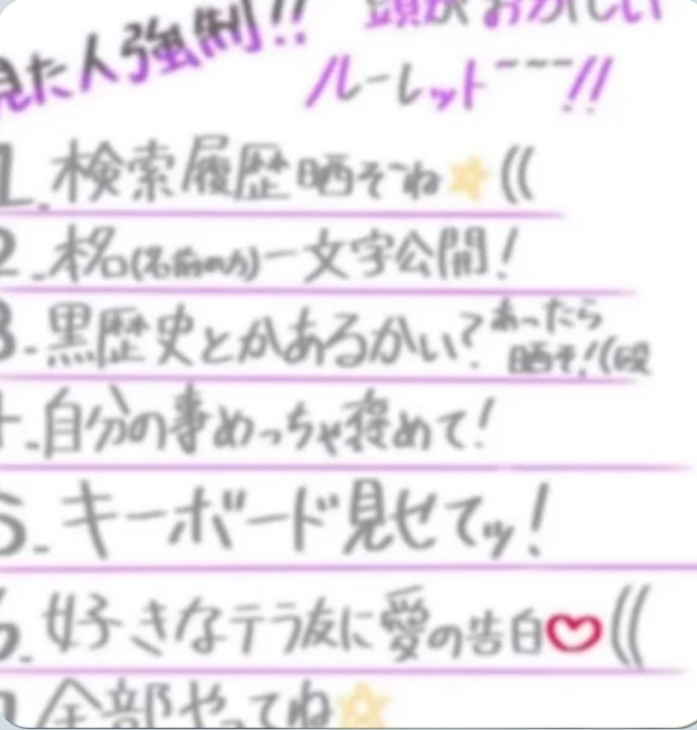 見た人強制!!
頭がおかしい
ルーレット~~~!!
1.検索履歴晒そうね☆((
2.本名(名前の方)一文字公開!
3.黒歴史とかあるかい?あったら
晒そ!(殴
4.自分の事めっちゃ褒めて!
5.キーボード見せてッ!
6.好きなテラ友に愛の告白♡((
7全部やってね☆